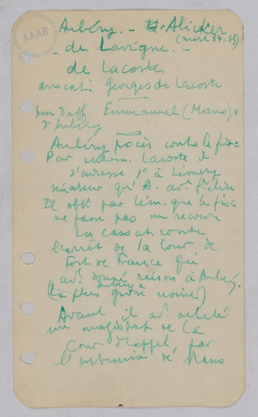 AAAB
Aubéry. — Alicker
(mort 34-35)
de Lavigne. —
de Lacoste
avocat. Georges de Lacoste
d'aff. Emmanuel (Mano).
d'Aubéry
Aubéry procès contre le fisc
Par Lacoste il
s'adresse 1° à Lémery
sénateur qu'A. av. élire
Il obt. par Lém. que le fisc
ne fasse pas un recours
en cassat. contre
l'arrêt de la Cour de
Fort de France qui
avt donné raison à Aubéry
(la plus grosse)
Avant il avt acheté
un magistrat de la
Cour d'appel, par
l'entremise de Mano